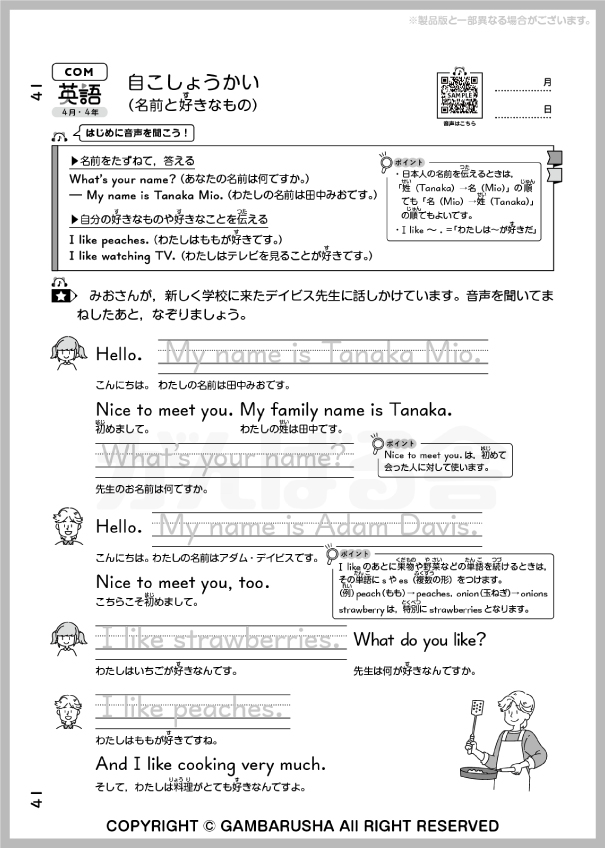 ※製品版と一部異なる場合がございます。
41
COM
英語
4月・4年
自こしょうかい
(名前と好きなもの)
SAMPLE
音声はこちら
月
日
はじめに音声を聞こう!
▶名前をたずねて,答える
What's your name? (あなたの名前は何ですか。)
— My name is Tanaka Mio. (わたしの名前は田中みおです。)
▶自分の好きなものや好きなことを伝える
I like peaches. (わたしはももが好きです。)
I like watching TV. (わたしはテレビを見ることが好きです。)
ポイント
・日本人の名前を伝えるときは,
「姓 (Tanaka) →名 (Mio)」の順
でも「名 (Mio) →姓 (Tanaka)」
の順でもよいです。
・I like ~ . =「わたしは~が好きだ」
みおさんが,新しく学校に来たデイビス先生に話しかけています。音声を聞いてま
ねしたあと,なぞりましょう。
Hello. My name is Tanaka Mio.
こんにちは。 わたしの名前は田中みおです。
Nice to meet you. My family name is Tanaka.
初めまして。 わたしの姓は田中です。
What's your name?
先生のお名前は何ですか。
ポイント
Nice to meet you. は, 初めて
会った人に対して使います。
がんばる舎
Hello. My name is Adam Davis.
こんにちは。わたしの名前はアダム・デイビスです。
Nice to meet you, too.
こちらこそ初めまして。
ポイント
I like のあとに果物や野菜などの単語を続けるときは,
その単語に s や es (複数の形) をつけます。
(例) peach (もも) →peaches. onion (玉ねぎ) →onions
strawberry は, 特別に strawberries となります。
I like strawberries. What do you like?
わたしはいちごが好きなんです。 先生は何が好きなんですか。
I like peaches.
わたしはももが好きですね。
And I like cooking very much.
そして,わたしは料理がとても好きなんですよ。
41
COPYRIGHT © GAMBARUSHA All RIGHT RESERVED